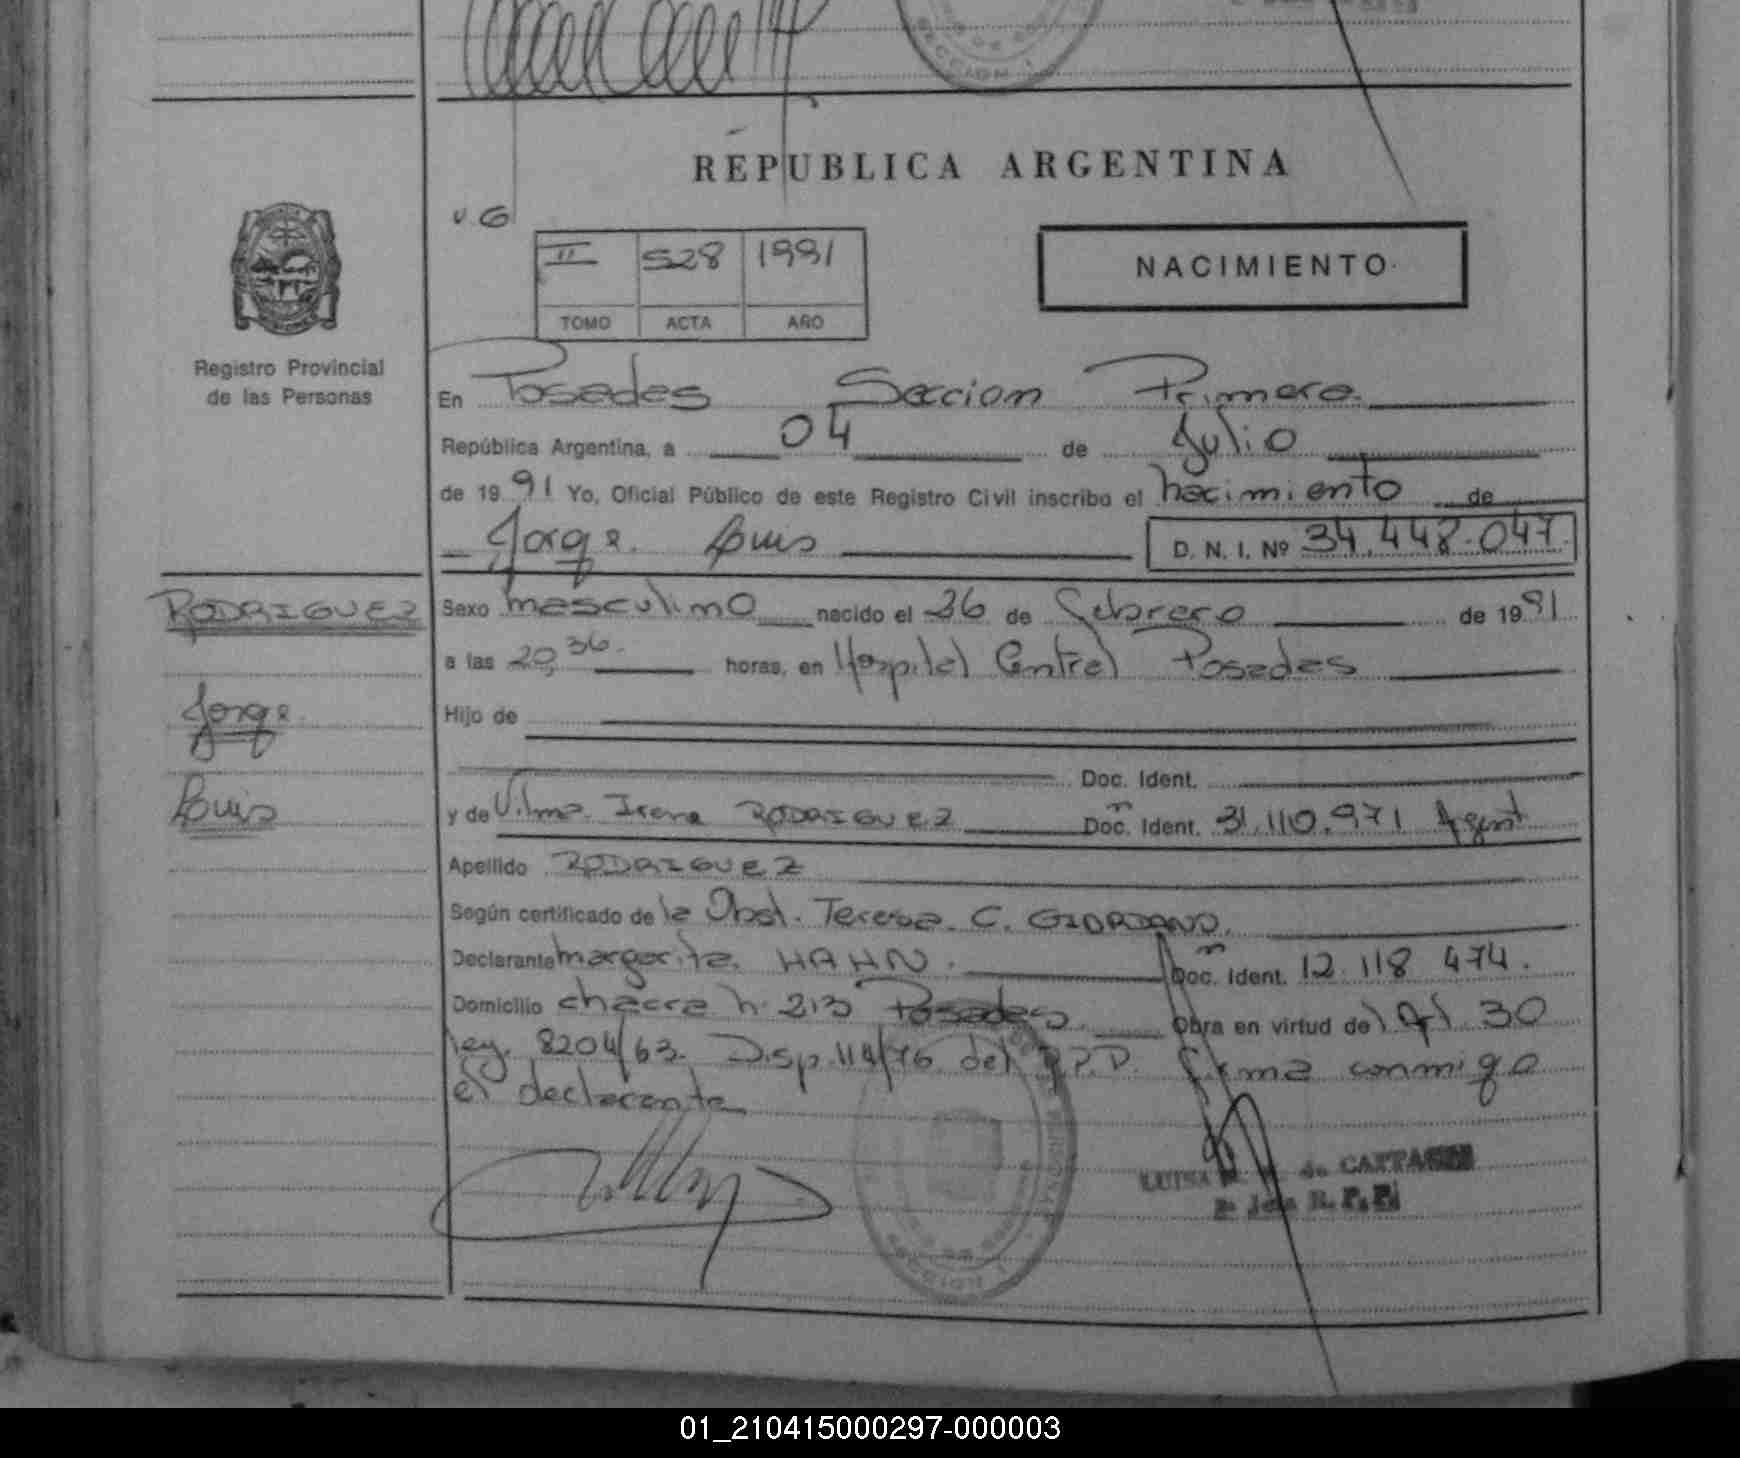 REPUBLICA ARGENTINA
V.G
II 528 1991
TOMO ACTA AÑO
NACIMIENTO
Registro Provincial
de las Personas
En Posadas Seccion Primera
República Argentina, a 04 de Julio
de 1991 Yo, Oficial Público de este Registro Civil inscribo el nacimiento de
Jorge Luis D. N. I. Nº 34.448.047
RODRIGUEZ
Jorge
Luis
Sexo masculino nacido el 26 de febrero de 1991
a las 20,36 horas, en Hospital Central Posadas
Hijo de
Doc. Ident.
y de Vilma Irene RODRIGUEZ Doc. Ident. 31.110.971 Argent
Apellido RODRIGUEZ
Según certificado de la Obst. Teresa C. GIORDANO.
Declarante Margarita HAHN. Doc. Ident. 12.118 474.
Domicilio chacra n. 213 Posadas Obra en virtud del Art 30
ley. 8204/63. Disp. 114/76 del R.P.P. firma conmigo
el declarante
LUISA de
R. P. P.
01_210415000297-000003